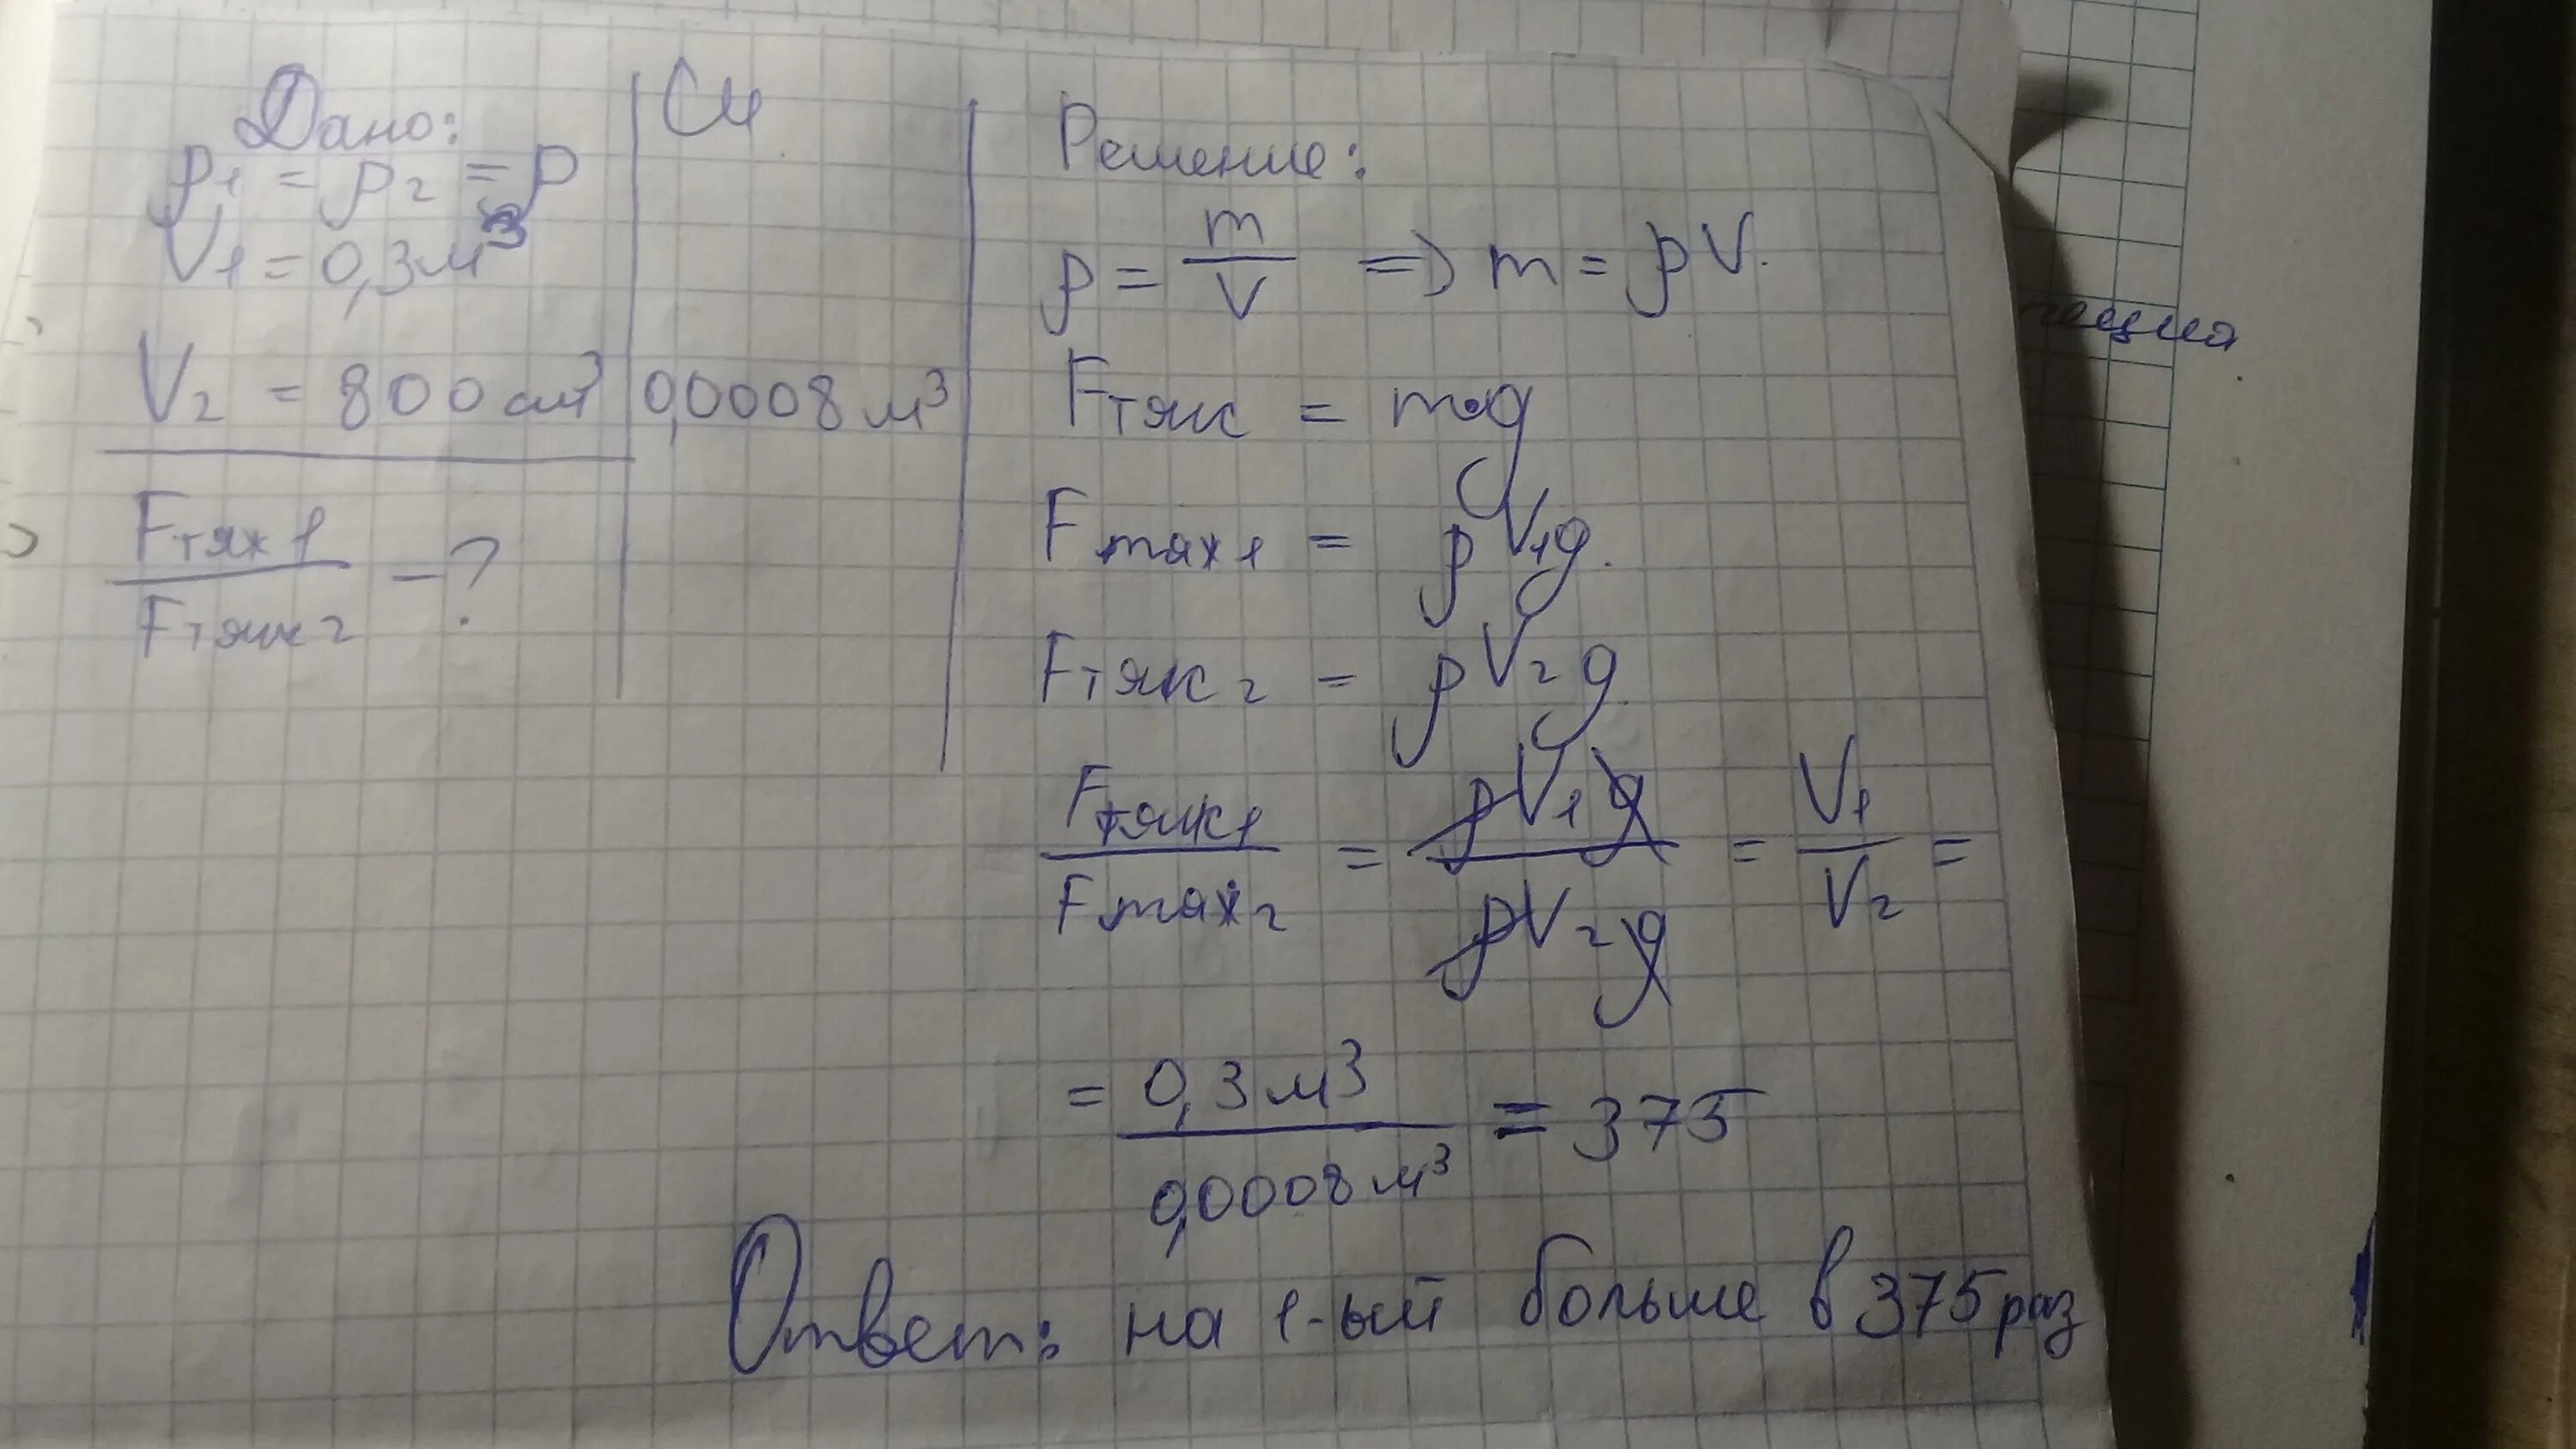 Дано:
ρ1 = ρ2 = ρ
V1 = 0,3 м³
V2 = 800 см³
Fтяж1 / Fтяж2 - ?
Си
0,0008 м³
Решение:
ρ = m / V => m = ρV.
Fтяж = m•g
Fтяж1 = ρV1g.
Fтяж2 = ρV2g.
Fтяж1 / Fтяж2 = ρV1g / ρV2g = V1 / V2 =
= 0,3 м³ / 0,0008 м³ = 375
Ответ: на 1-ый больше в 375 раз